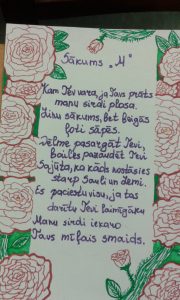 Sākums „M"
Kam Tev vara, ja Tavs prāts
manu sirdi plosa.
Jūsu sākums, bet beigās
ļoti sāpēs.
Vēlme pasargāt Tevi,
bailes pazaudēt Tevi
Sajūta, ka kāds nostāsies
starp Sauli un Zemi.
Es paciestu visu, ja tas
darītu Tevi laimīgāku
Manu sirdi iekaro
Tavs mīļais smaids.